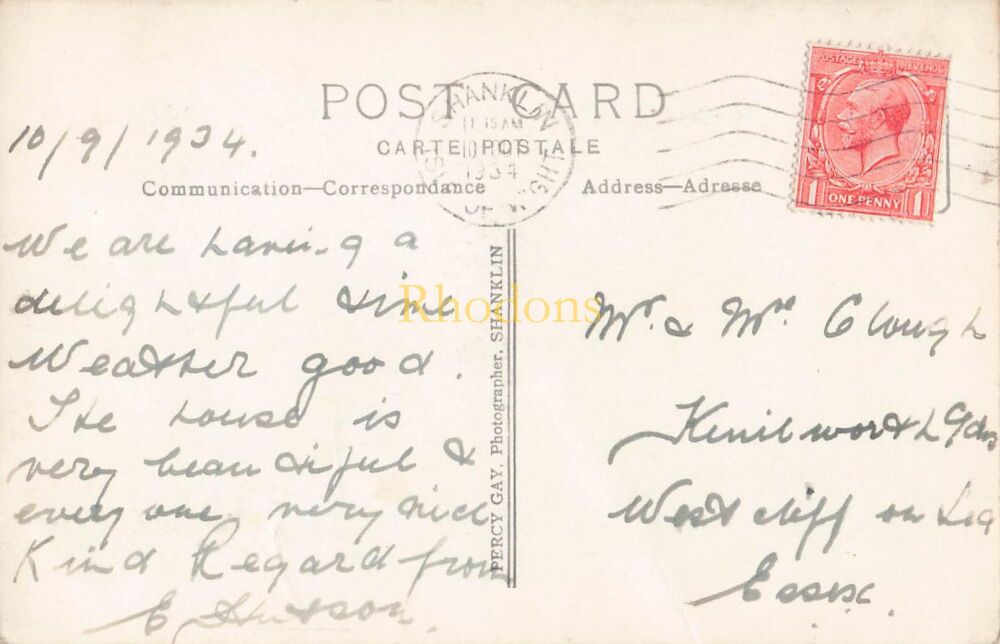 POST CARD
CARTE POSTALE
Communication—Correspondance
Address—Adresse
SHANKLIN
11 15 AM
1934
POSTAGE REVENUE
1 ONE PENNY 1
10/9/1934.
We are having a
delightful time
Weather good.
The house is
very beautiful &
every one very nice
Kind Regard from
E Hutson.
PERCY GAY, Photographer, SHANKLIN
Rhodons
Mr. & Mrs Clough
Kenilworth Gdns
Westcliff on Sea
Essex.